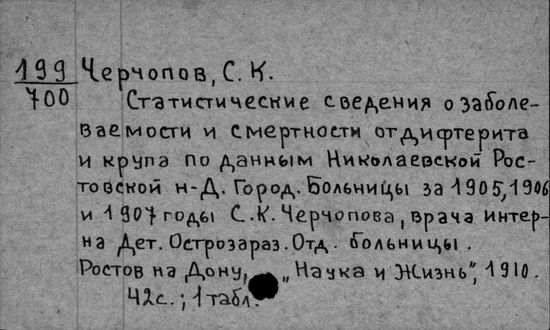 199 Черчопов, С. К.
700 Статистические сведения о заболе-
ваемости и смертности от дифтерита
и крупа по данным Николаевской Рос-
товской н-Д. Город. Больницы за 1905, 1906
и 1907 годы С. К. Черчопова, врача интер-
на Дет. Острозараз. Отд. больницы.
Ростов на Дону, „Наука и Жизнь", 1910.
42с.; 1 табл.